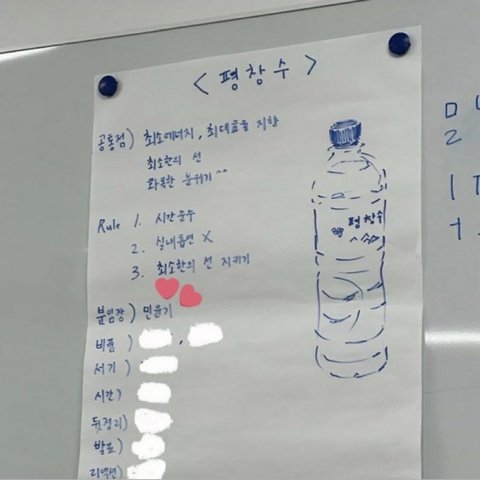 <평창수>
공통점) 최소에너지, 최대효율 지향
최소한의 선
화목한 분위기^^
Rule 1. 시간준수
2. 실내흡연 X
3. 최소한의 선 지키기
분임장) 민윤기
비품) ,
서기)
시간)
뒷정리)
발표)
리액션)
평창수